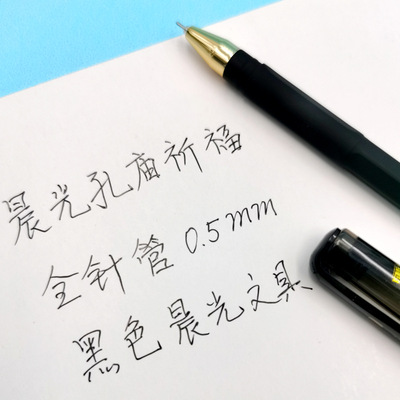 晨光孔庙祈福
全针管0.5mm
黑色晨光文具